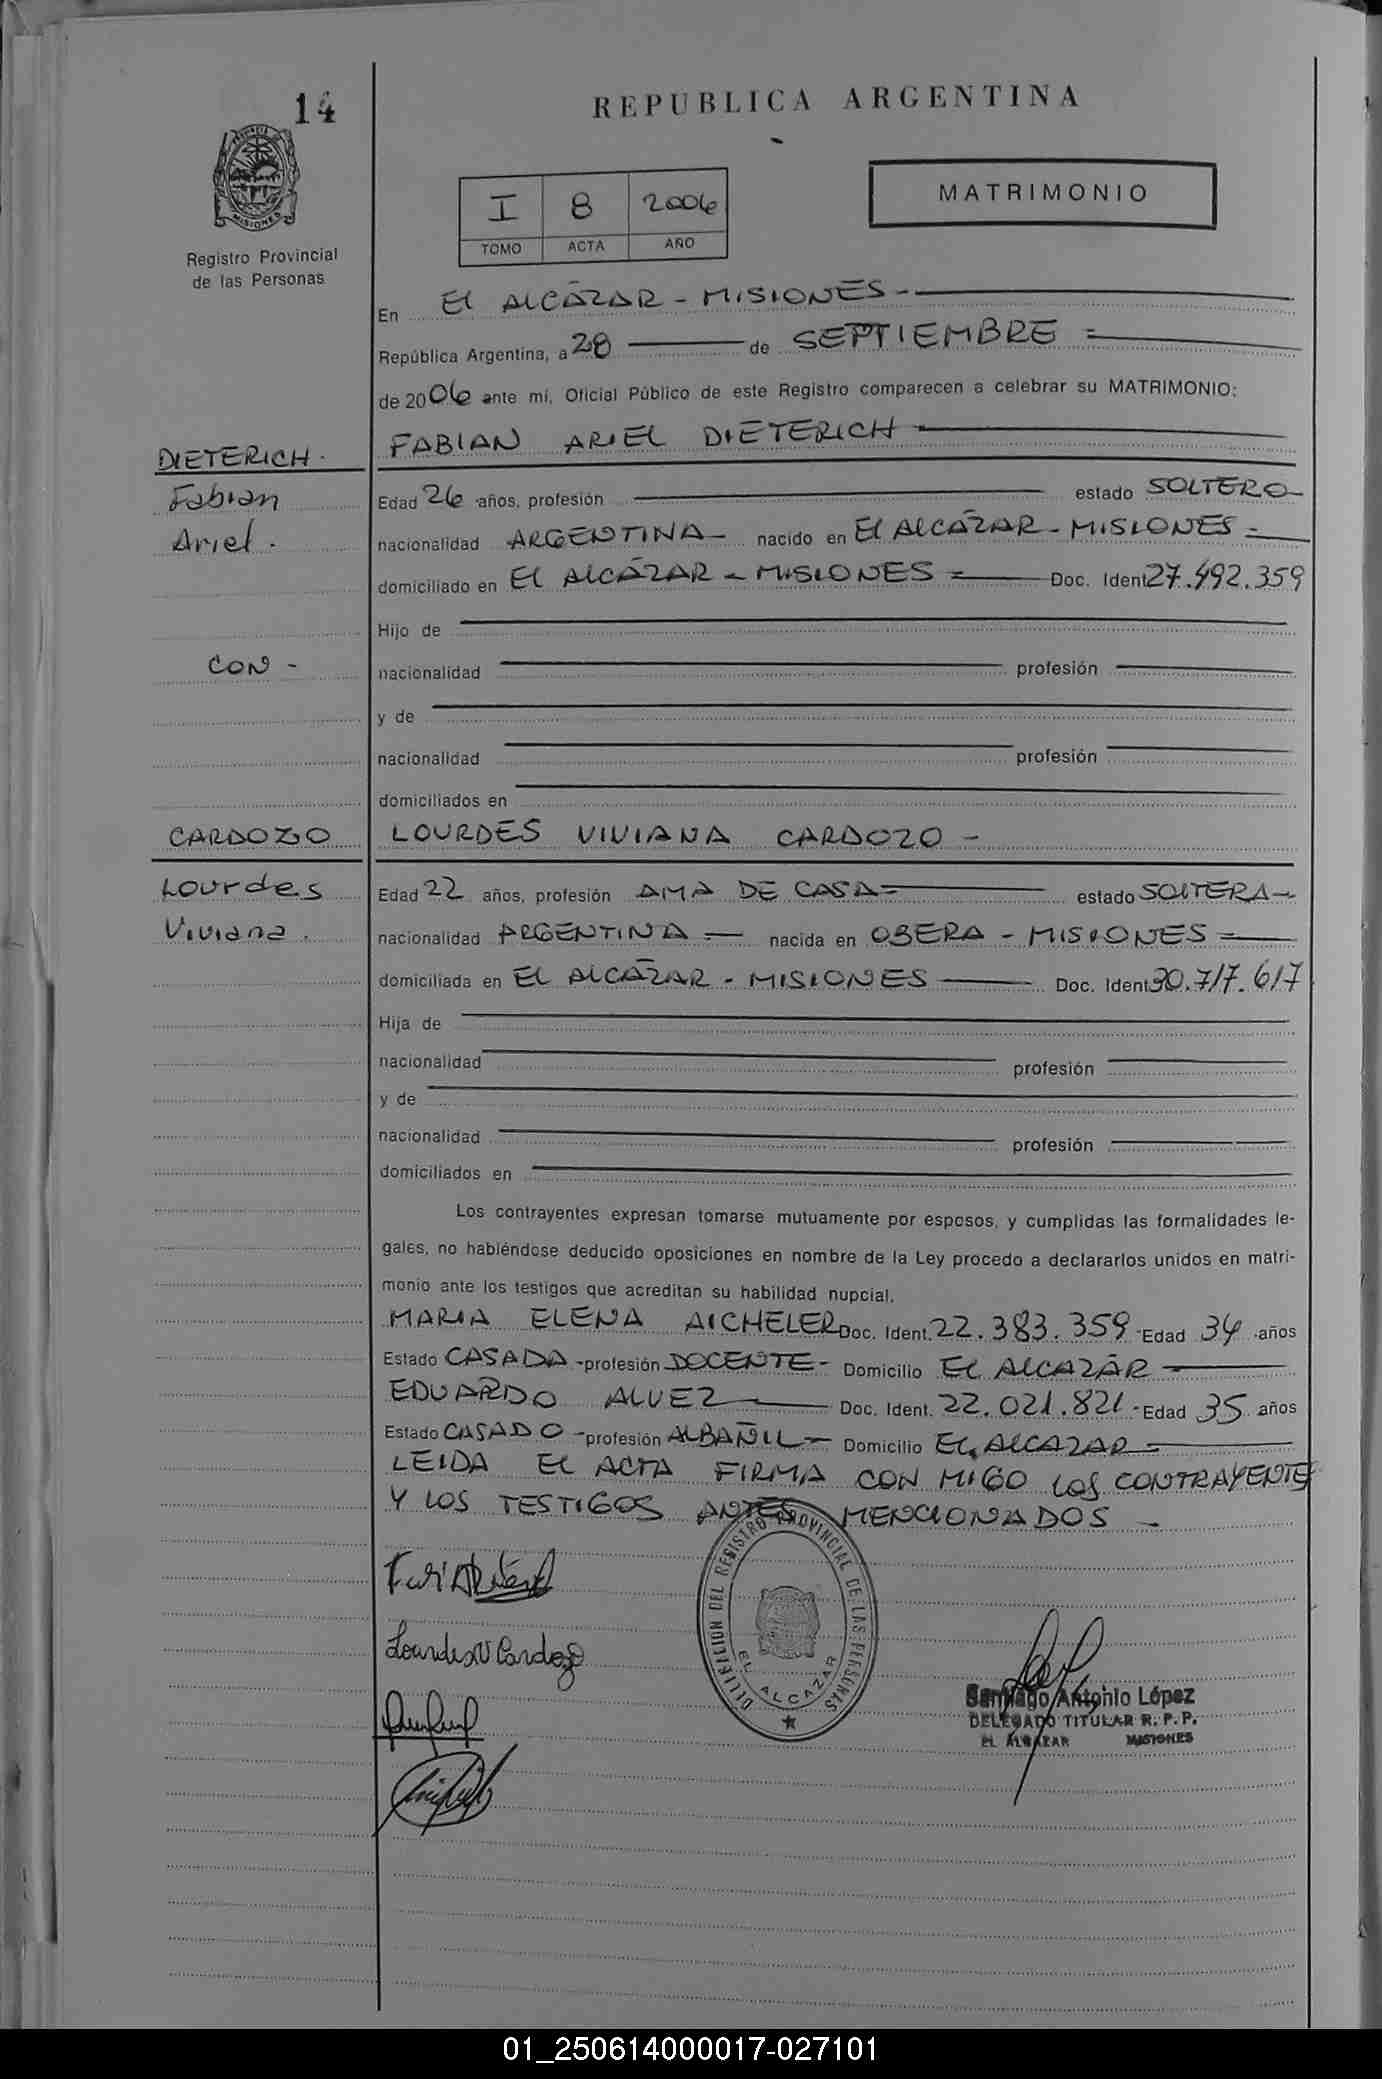 14
REPUBLICA ARGENTINA
MATRIMONIO
I 8 2006
TOMO ACTA AÑO
Registro Provincial
de las Personas
En El ALCÁZAR - MISIONES -
República Argentina, a 28 de SEPTIEMBRE
de 2006 ante mí, Oficial Público de este Registro comparecen a celebrar su MATRIMONIO:
DIETERICH. FABIAN ARIEL DIETERICH
Fabian Edad 26 años, profesión estado SOLTERO
Ariel. nacionalidad ARGENTINA nacido en El ALCÁZAR - MISIONES
domiciliado en El ALCÁZAR - MISIONES Doc. Ident 27.492.359
Hijo de
CON - nacionalidad profesión
y de
nacionalidad profesión
domiciliados en
CARDOZO LOURDES VIVIANA CARDOZO -
Lourdes Edad 22 años, profesión AMA DE CASA estado SOLTERA
Viviana. nacionalidad ARGENTINA nacida en OBERA - MISIONES
domiciliada en EL ALCÁZAR - MISIONES Doc. Ident 30.717.617
Hija de
nacionalidad profesión
y de
nacionalidad profesión
domiciliados en
Los contrayentes expresan tomarse mutuamente por esposos, y cumplidas las formalidades le-
gales, no habiéndose deducido oposiciones en nombre de la Ley procedo a declararlos unidos en matri-
monio ante los testigos que acreditan su habilidad nupcial.
MARIA ELENA AICHELER Doc. Ident. 22.383.359 Edad 34 años
Estado CASADA profesión DOCENTE - Domicilio EL ALCAZÁR
EDUARDO ALVEZ Doc. Ident. 22.021.821 Edad 35 años
Estado CASADO profesión ALBAÑIL Domicilio EL ALCAZAR
LEIDA EL ACTA FIRMA CON MIGO LOS CONTRAYENTES
Y LOS TESTIGOS ANTES MENCIONADOS -
Lourdes V Cardozo
REGISTRO PROVINCIAL DE LAS PERSONAS
EL ALCAZAR
Santiago Antonio López
DELEGADO TITULAR R. P. P.
EL ALCAZAR MISIONES
01_250614000017-027101